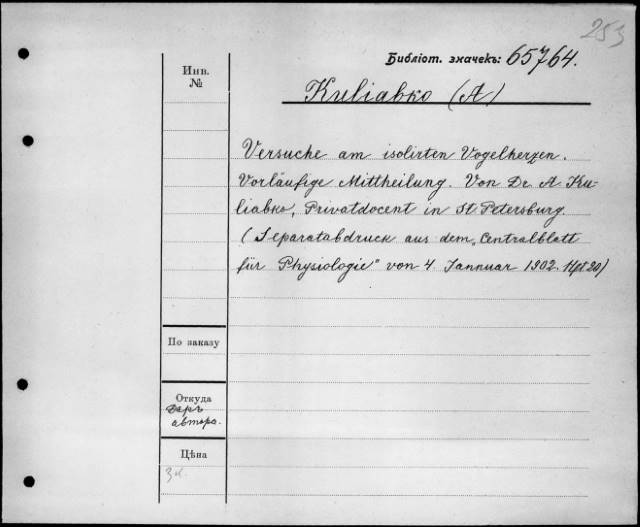 253
Библіот. значекъ: 65764.
Инв.
№
Kuliabko (A)
Versuche am isolirten Vogelherzen.
Vorläufige Mittheilung. Von Dr. A. Ku-
liabko, Privatdocent in St. Petersburg.
(Separatabdruck aus dem „Centralblatt
für Physiologie" von 4. Jannuar 1902. Hft 20)
По заказу
Откуда
Даръ
автора.
Цѣна